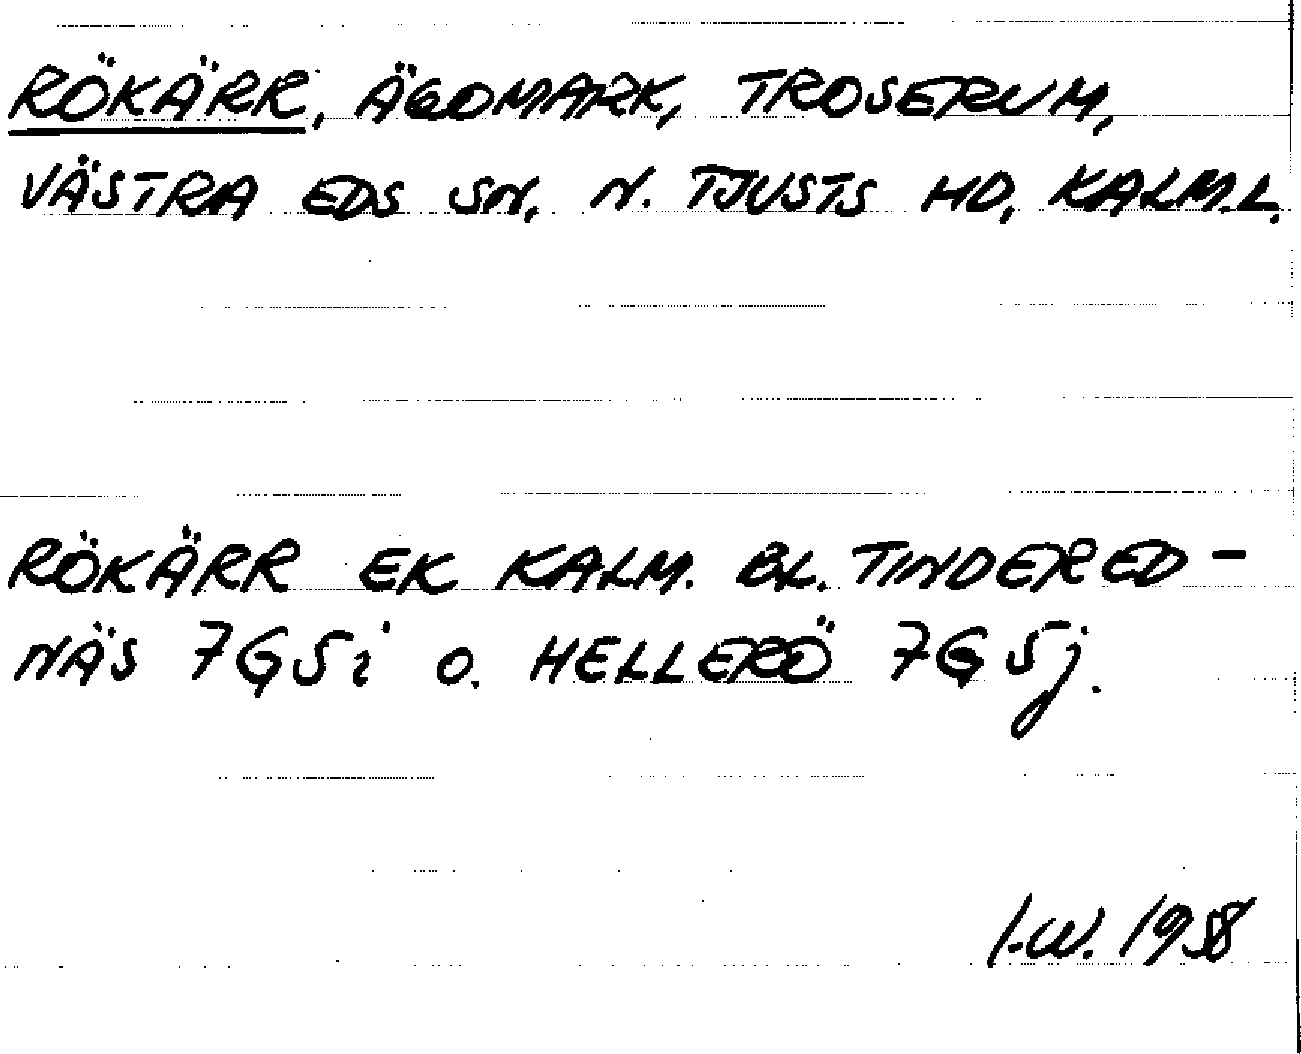 RÖKÄRR, ÄGOMARK, TROSERUM,
VÄSTRA EDS SN, N. TJUSTS HD, KALM.L.
RÖKÄRR EK KALM. BL. TINDERED-
NÄS 7G5i o. HELLERÖ 7G5j.
I.W. 1958